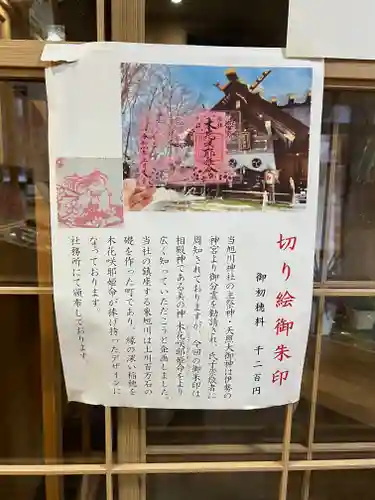 切り絵御朱印
御初穂料　千二百円
当旭川神社の主祭神・天照大御神は伊勢の
神宮より御分霊を勧請され、氏子崇敬者に
周知されておりますが、今回の御朱印は
相殿神である美の神 木花咲耶姫命をより
広く知っていただこうと企画しました。
当社の鎮座する東旭川は上川百万石の
礎を作った町であり、縁の深い稲穂を
木花咲耶姫命が捧げ持ったデザインに
なっております。
社務所にて頒布しております。
木花咲耶姫